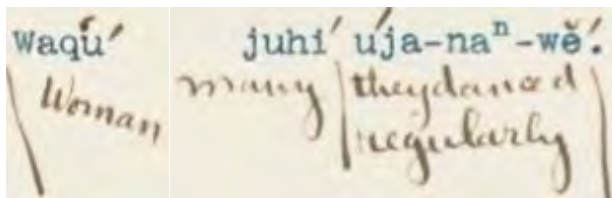 waqú´ juhí´ úja-naⁿ-wĕ´.
Woman many they danced
regularly